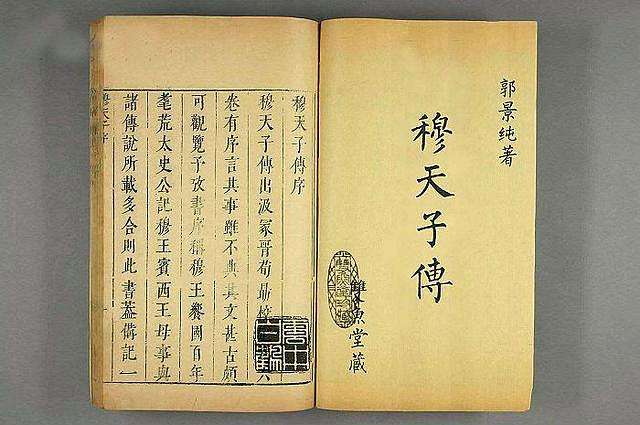 郭景純著
穆天子傳
雙魚堂藏
穆天子傳序
穆天子傳出汲冢晉荀勗校
六
卷有序言其事雖不典其文甚古頗
可觀覽予攷書序稱穆王饗國百年
耄荒太史公記穆王賓西王母事與
諸傳說所載多合則此書葢備記一
穆天子序